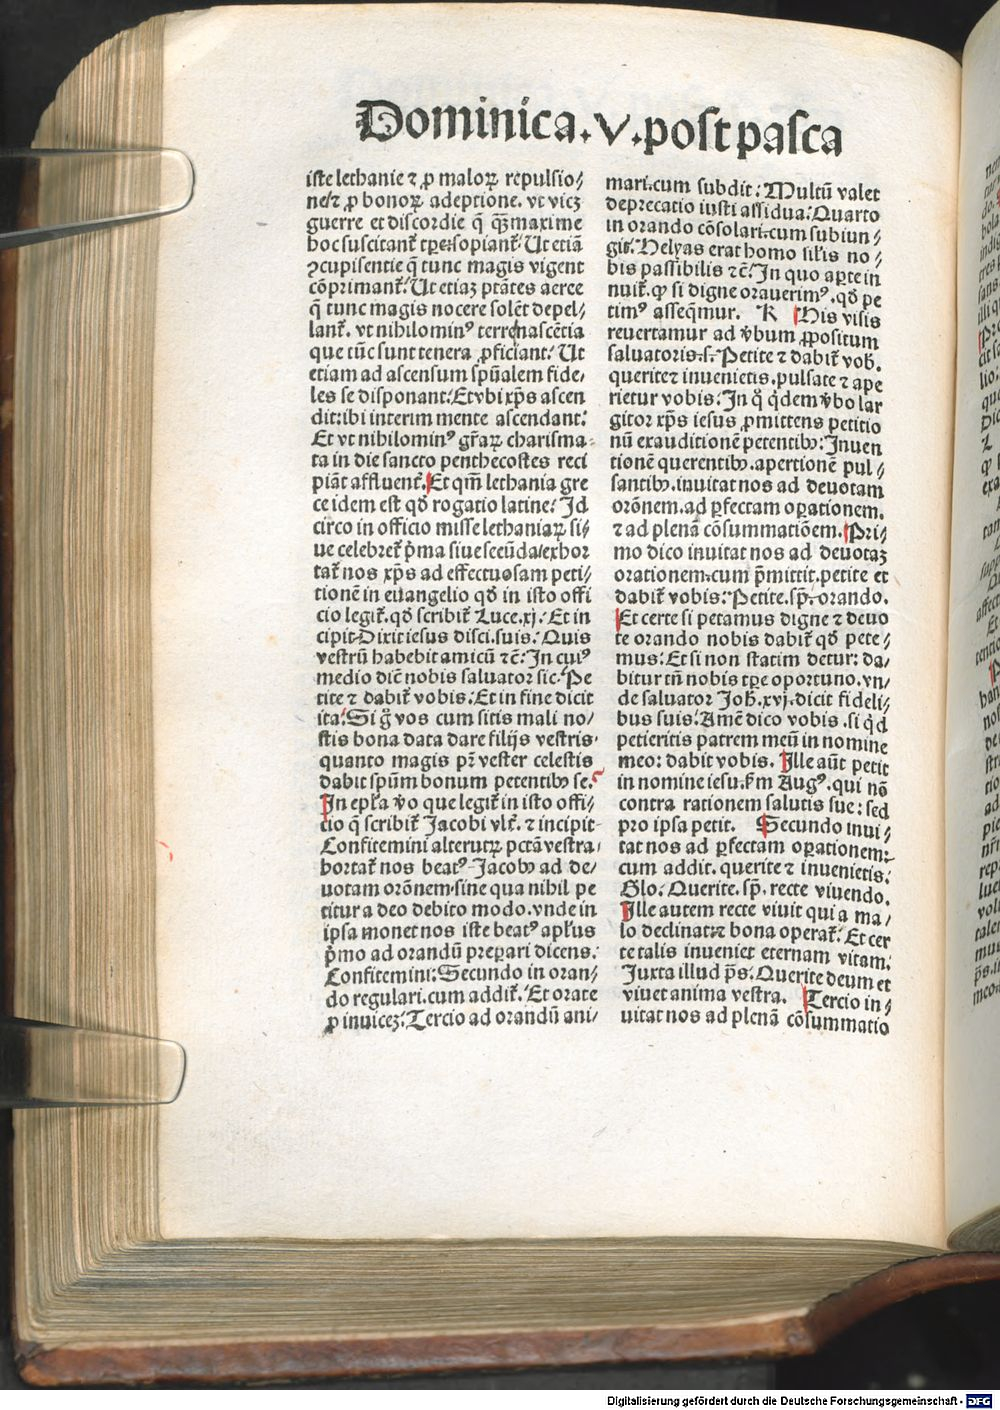 Dominica.V.post pasca
iste lethanie ⁊ ꝓ maloꝝ repulsio⸗
ne/⁊ ꝓ bonoꝝ adeptione. vt vicꝫ
guerre et discordie q̄ qꝫ maxime
hoc suscitant̄ tꝑe/sopiant̄. Ut etiā
ꝯcupisentie q̄ tunc magis vigent
cōprimant̄. Ut etiaꝫ ptātes aeree
q̄ tunc magis nocere solēt depel⸗
lant̄. vt nihilominꝰ terre nascētia
que tūc sunt tenera ꝓficiant. Ut
etiam ad ascensum spūalem fide⸗
les se disponant. Et vbi xp̄s ascen
dit: ibi interim mente ascendant.
Et vt nihilominꝰ gr̄aꝝ charisma⸗
ta in die sancto penthecostes reci
piāt affluent̄. Et qm̄ lethania gre
ce idem est qd̄ rogatio latine. Id
circo in officio misse lethaniaꝝ si⸗
ue celebret̄ p̄ma siue secūda/exhor
tat̄ nos xp̄s ad effectuosam peti⸗
tionē in euangelio qd̄ in isto offi
cio legit̄. qd̄ scribit̄ Luce.xj. Et in
cipit. Dixit iesus disci. suis. Quis
vestrū habebit amicū ⁊c̄. In cuiꝰ
medio dic̄ nobis saluator sic. Pe
tite ⁊ dabit̄ vobis. Et in fine dicit
ita. Si g̊ vos cum sitis mali no⸗
stis bona data dare filijs vestris.
quanto magis pr̄ vester celestis
dabit spūm bonum petentibꝫ se.
In ep̄la v̊o que legit̄ in isto offi⸗
cio q̄ scribit̄ Jacobi vlt̄. ⁊ incipit
Confitemini alterutꝝ pctā vestra⸗
hortat̄ nos beatꝰ Jacobꝫ ad de⸗
uotam orōnem. sine qua nihil pe
titur a deo debito modo. vnde in
ipsa monet nos iste beatꝰ apl̄us
p̊mo ad orandū preꝑari dicens.
Confitemini. Secundo in oran⸗
do regulari. cum addit̄. Et orate
ꝓ inuiceꝫ. Tercio ad orandū ani⸗
mari. cum subdit. Multū valet
deprecatio iusti assidua. Quarto
in orando cōsolari. cum subiun⸗
git. Helyas erat homo sil̄is no⸗
bis passibilis ⁊c̄. In quo aꝑte in
nuit̄. ꝙ si digne orauerimꝰ. qd̄ pe
timꝰ asseq̄mur. K His visis
reuertamur ad v̊bum ꝓpositum
saluatoris. s. Petite ⁊ dabit̄ vob̄.
querite⁊ inuenietis. pulsate ⁊ ape
rietur vobis. In q̊ q̊dem v̊bo lar
gitor xp̄s iesus ꝓmittens petitio
nū exauditionē petentibꝫ. Inuen
tionē querentibꝫ. apertionē pul⸗
santibꝫ. inuitat nos ad deuotam
orōnem. ad ꝑfectam oꝑationem.
⁊ ad plenā cōsummatiōem. Pri⸗
mo dico inuitat nos ad deuotaꝫ
orationem. cum p̄mittit. petite et
dabit̄ vobis. Petite. sp̄. orando.
Et certe si petamus digne ⁊ deuo
te orando nobis dabit̄ qd̄ pete⸗
mus. Et si non statim detur: da⸗
bitur tn̄ nobis tꝑe oportuno. vn⸗
de saluator Joh̄.xvj. dicit fideli⸗
bus suis. Amē dico vobis. si q̇d
petieritis patrem meū in nomine
meo: dabit vobis. Ille aūt petit
in nomine iesu. fm̄ Augꝰ. qui nō
contra rationem salutis sue: sed
pro ipsa petit. Secundo inui⸗
tat nos ad ꝑfectam oꝑationem.
cum addit. querite ⁊ inuenietis.
Glo. Querite. sp̄. recte viuendo.
Ille autem recte viuit qui a ma⸗
lo declinat⁊ bona operat̄. Et cer
te talis inueniet eternam vitam.
Juxta illud p̄s. Querite deum et
viuet anima vestra. Tercio in⸗
uitat nos ad plenā cōsummatio
Digitalisierung gefördert durch die Deutsche Forschungsgemeinschaft - DFG